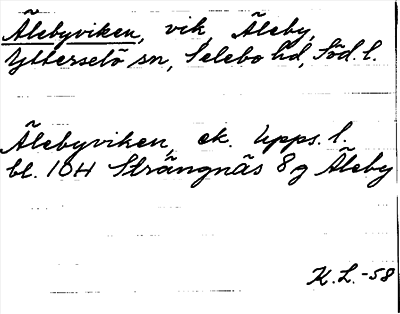 Ålebyviken, vik, Åleby,
Ytterselö sn, Selebo hd, Söd. l.
Ålebyviken, ek. Upps. l.
bl. 10H Strängnäs 8g Åleby
K.L.-58